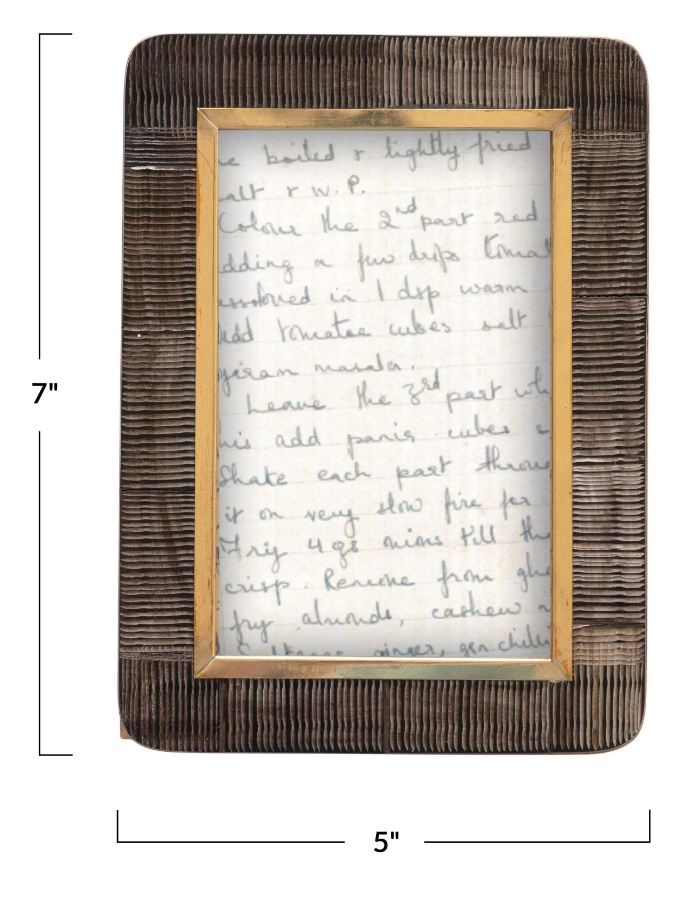 e boiled & lightly fried
alt & W.P.
Colour the 2nd part red
dding a few drops tomat
issolved in 1 dsp warm
Add tomatoe cubes salt
garam masala.
Leave the 3rd part whi
his add panir cubes
Shake each part
it on very slow fire for
Fry 4 gs onions till the
crisp. Remove from ghe
fry almonds, cashew n
ginger, grn chilli
7"
5"